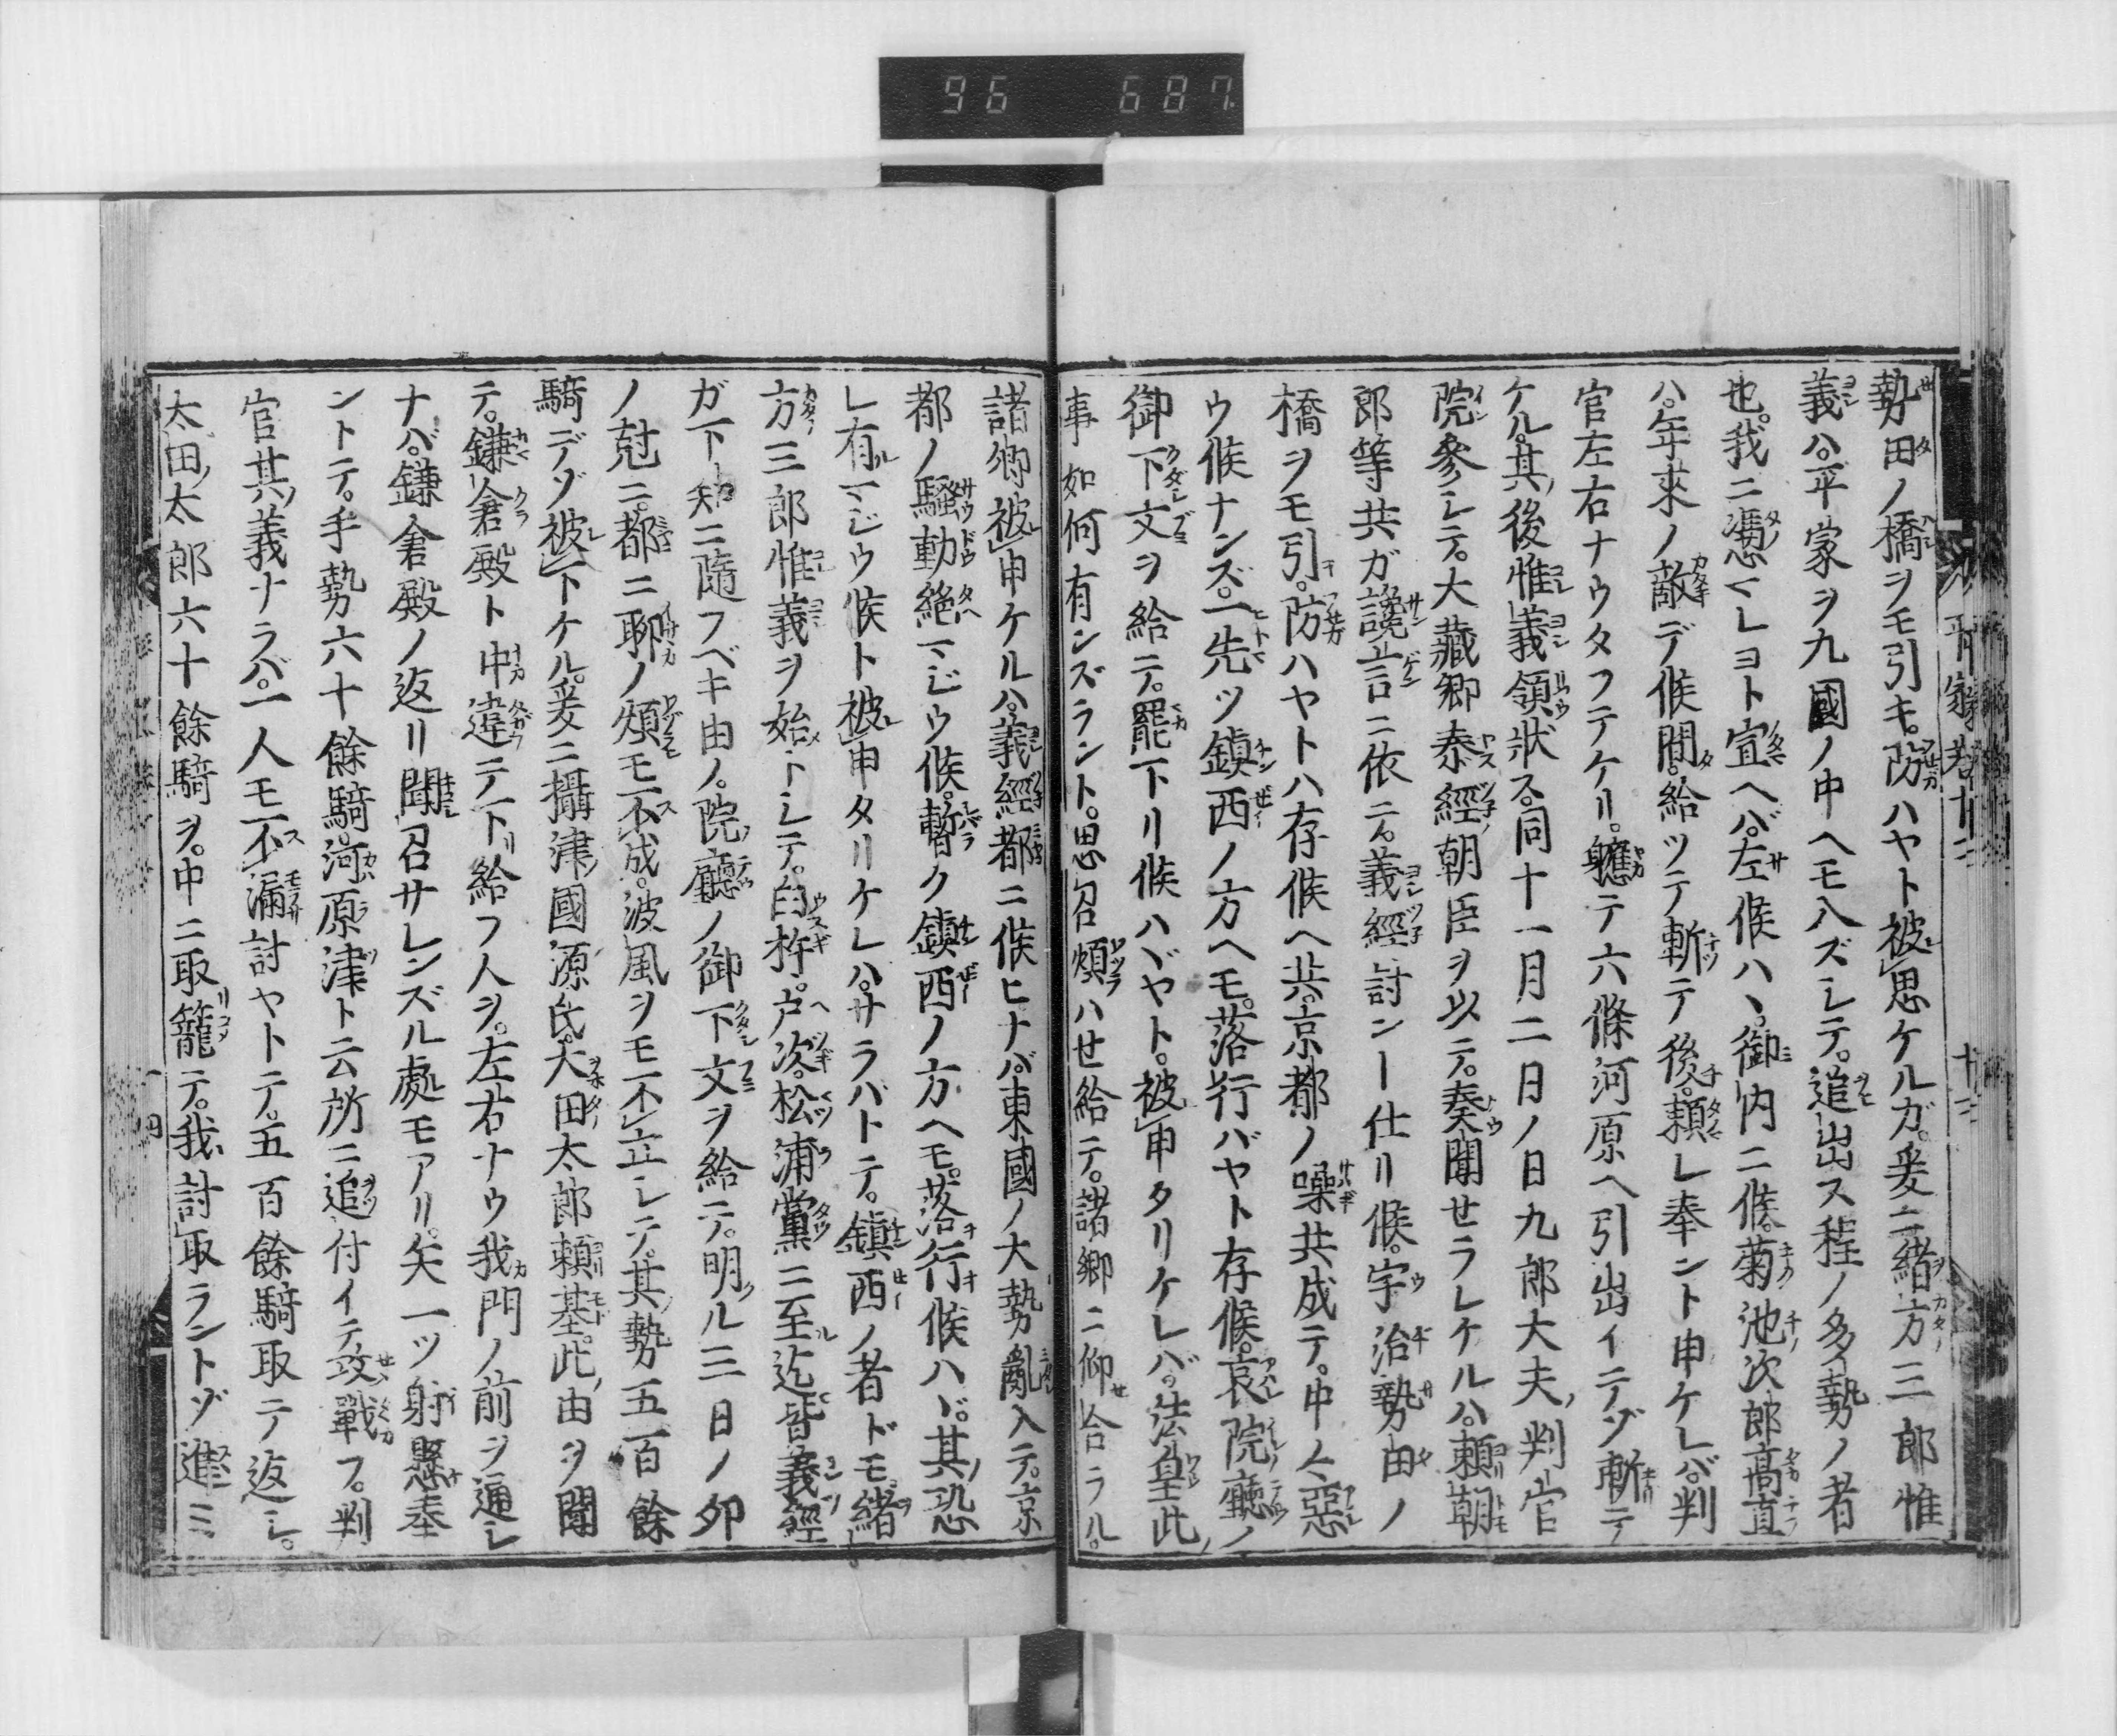 96 687
勢田ノ橋ヲモ引キ。防ハヤト被思ケルガ。爰ニ緒方三郎惟
義ハ。平家ヲ九國ノ中ヘモ入ズシテ。追出ス程ノ多勢ノ者
也。我ニ憑マレヨト宣ヘバ。左候ハヽ。御内ニ候。菊池次郎高直
ハ。年來ノ敵デ候間。給ツテ斬テ後。頼レ奉ント申ケレバ。判
官左右ナウタフテケリ。軈テ六條河原ヘ引出イテゾ斬テ
ケル。其後惟義領狀ス。同十一月二日ノ日九郎大夫判官
院參シテ。大藏卿泰經朝臣ヲ以テ。奏聞せラレケルハ。頼朝
郎等共ガ讒言ニ依テ。義經討ント仕リ候。宇治勢田ノ
橋ヲモ引。防ハヤトハ存候ヘ共。京都ノ噪共成テ。中々惡
ウ候ナンズ。一先ツ鎭西ノ方ヘモ。落行バヤト存候。哀院廳ノ
御下文ヲ給テ。罷下リ候ハヾヤト。被申タリケレバ。法皇此
事如何有ンズラント。思召煩ハせ給テ。諸卿ニ仰合ラル。
諸卿被申ケルハ。義經都ニ候ヒナバ。東國ノ大勢亂入テ。京
都ノ騷動絶マジウ候。暫ク鎭西ノ方ヘモ。落行候ハヾ。其恐
レ有マジウ候ト被申タリケレハ。サラバトテ。鎭西ノ者ドモ緒
方三郎惟義ヲ始トシテ。臼杵。戸次。松浦黨ニ至迄皆義經
ガ下知ニ隨フベキ由ノ。院廳ノ御下文ヲ給テ。明ル三日ノ卯
ノ尅ニ。都ニ聊ノ煩モ不成。波風ヲモ不立シテ。其勢五百餘
騎デゾ被下ケル。爰ニ攝津國源氏。太田太郎頼基。此由ヲ聞
テ。鎌倉殿ト中違テ下リ給フ人ヲ。左右ナウ我門ノ前ヲ通シ
ナハ。鎌倉殿ノ返リ聞召サレンズル處モアリ。矢一ツ射懸奉
ントテ。手勢六十餘騎。河原津ト云所ニ追付イテ攻戰フ。判
官其義ナラバ。一人モ不漏討ヤトテ。五百餘騎取テ返シ。
太田太郎六十餘騎ヲ。中ニ取籠テ。我討取ラントゾ進ミ